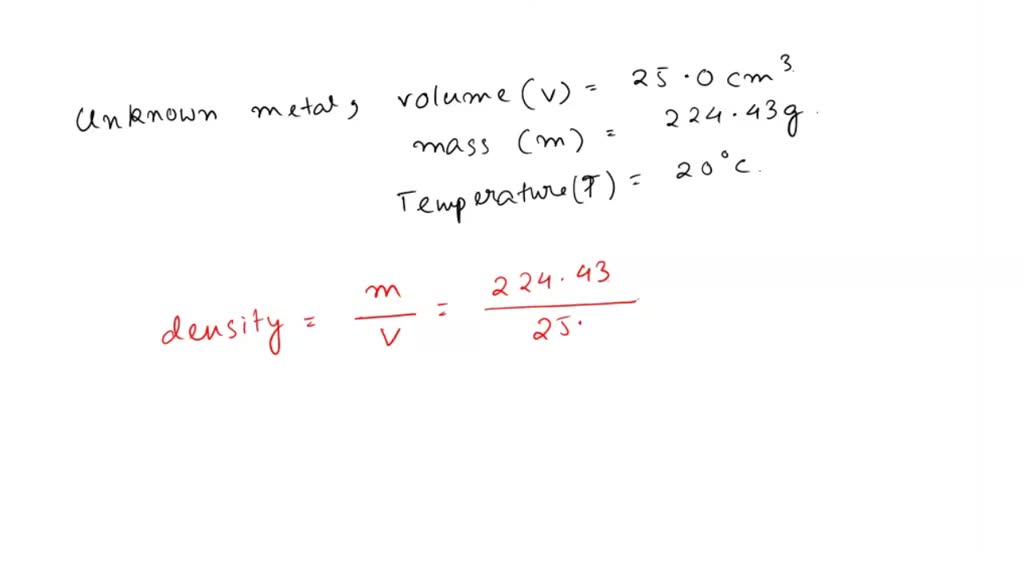 Unknown metal, volume (v) = 25.0 cm³
mass (m) = 224.43g.
Temperature (T) = 20°C.
density = m/v = 224.43/25.